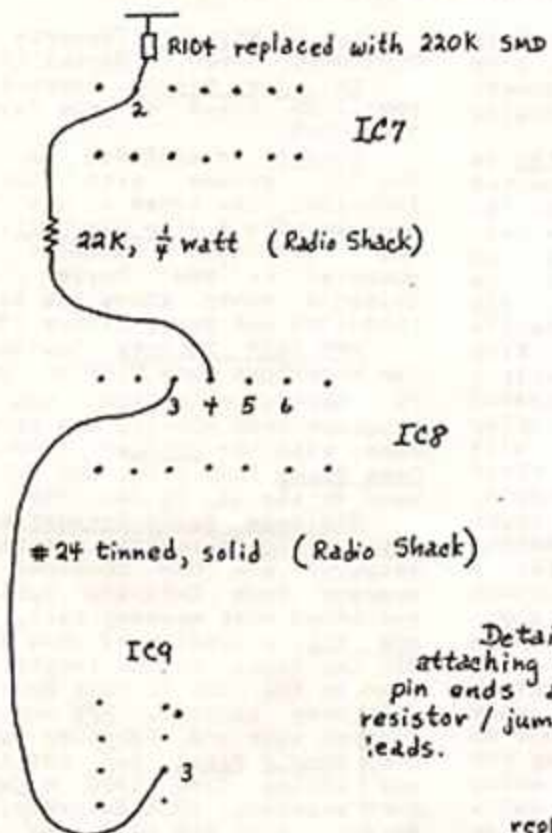 R104 replaced with 220K SMD
2
IC7
22K, 1/4 watt (Radio Shack)
3 4 5 6
IC8
#24 tinned, solid (Radio Shack)
IC9
3
attaching
pin ends
resistor / jum
leads.